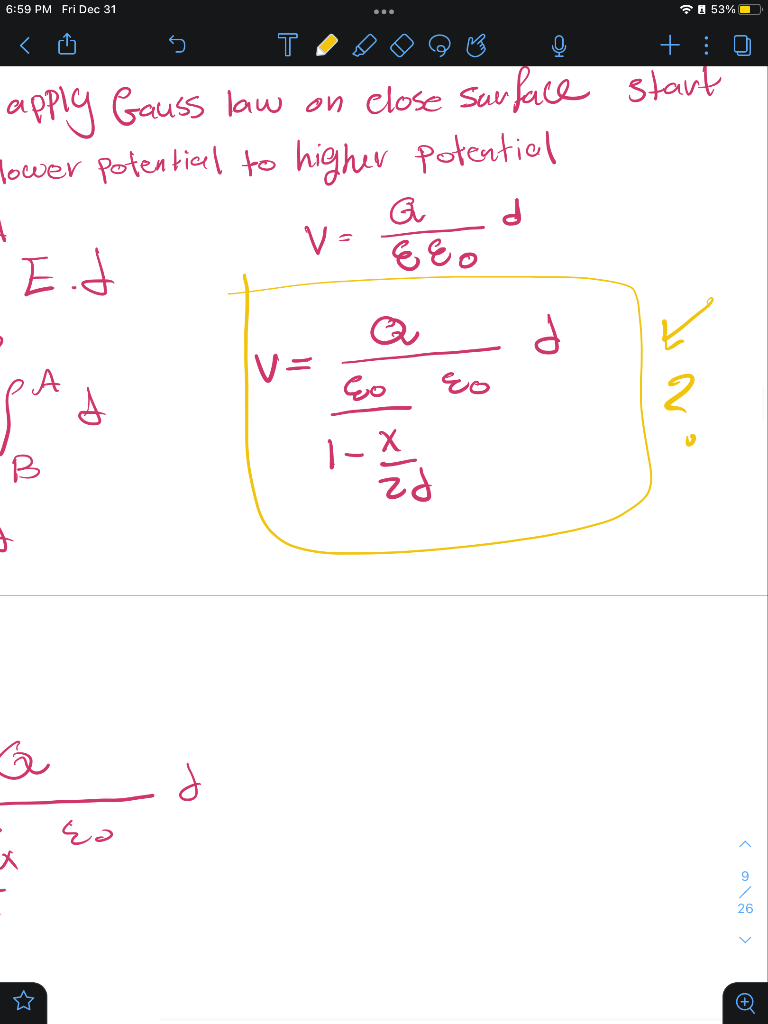 6:59 PM Fri Dec 31
53%
T
apply Gauss law on close surface start
lower potential to higher potential
V = Q / εε₀ d
E.d
V = Q / ((ε₀ / (1 - x/2d)) ε₀) d
∫ A B d
?
Q / ε₀ d
x
9
/
26